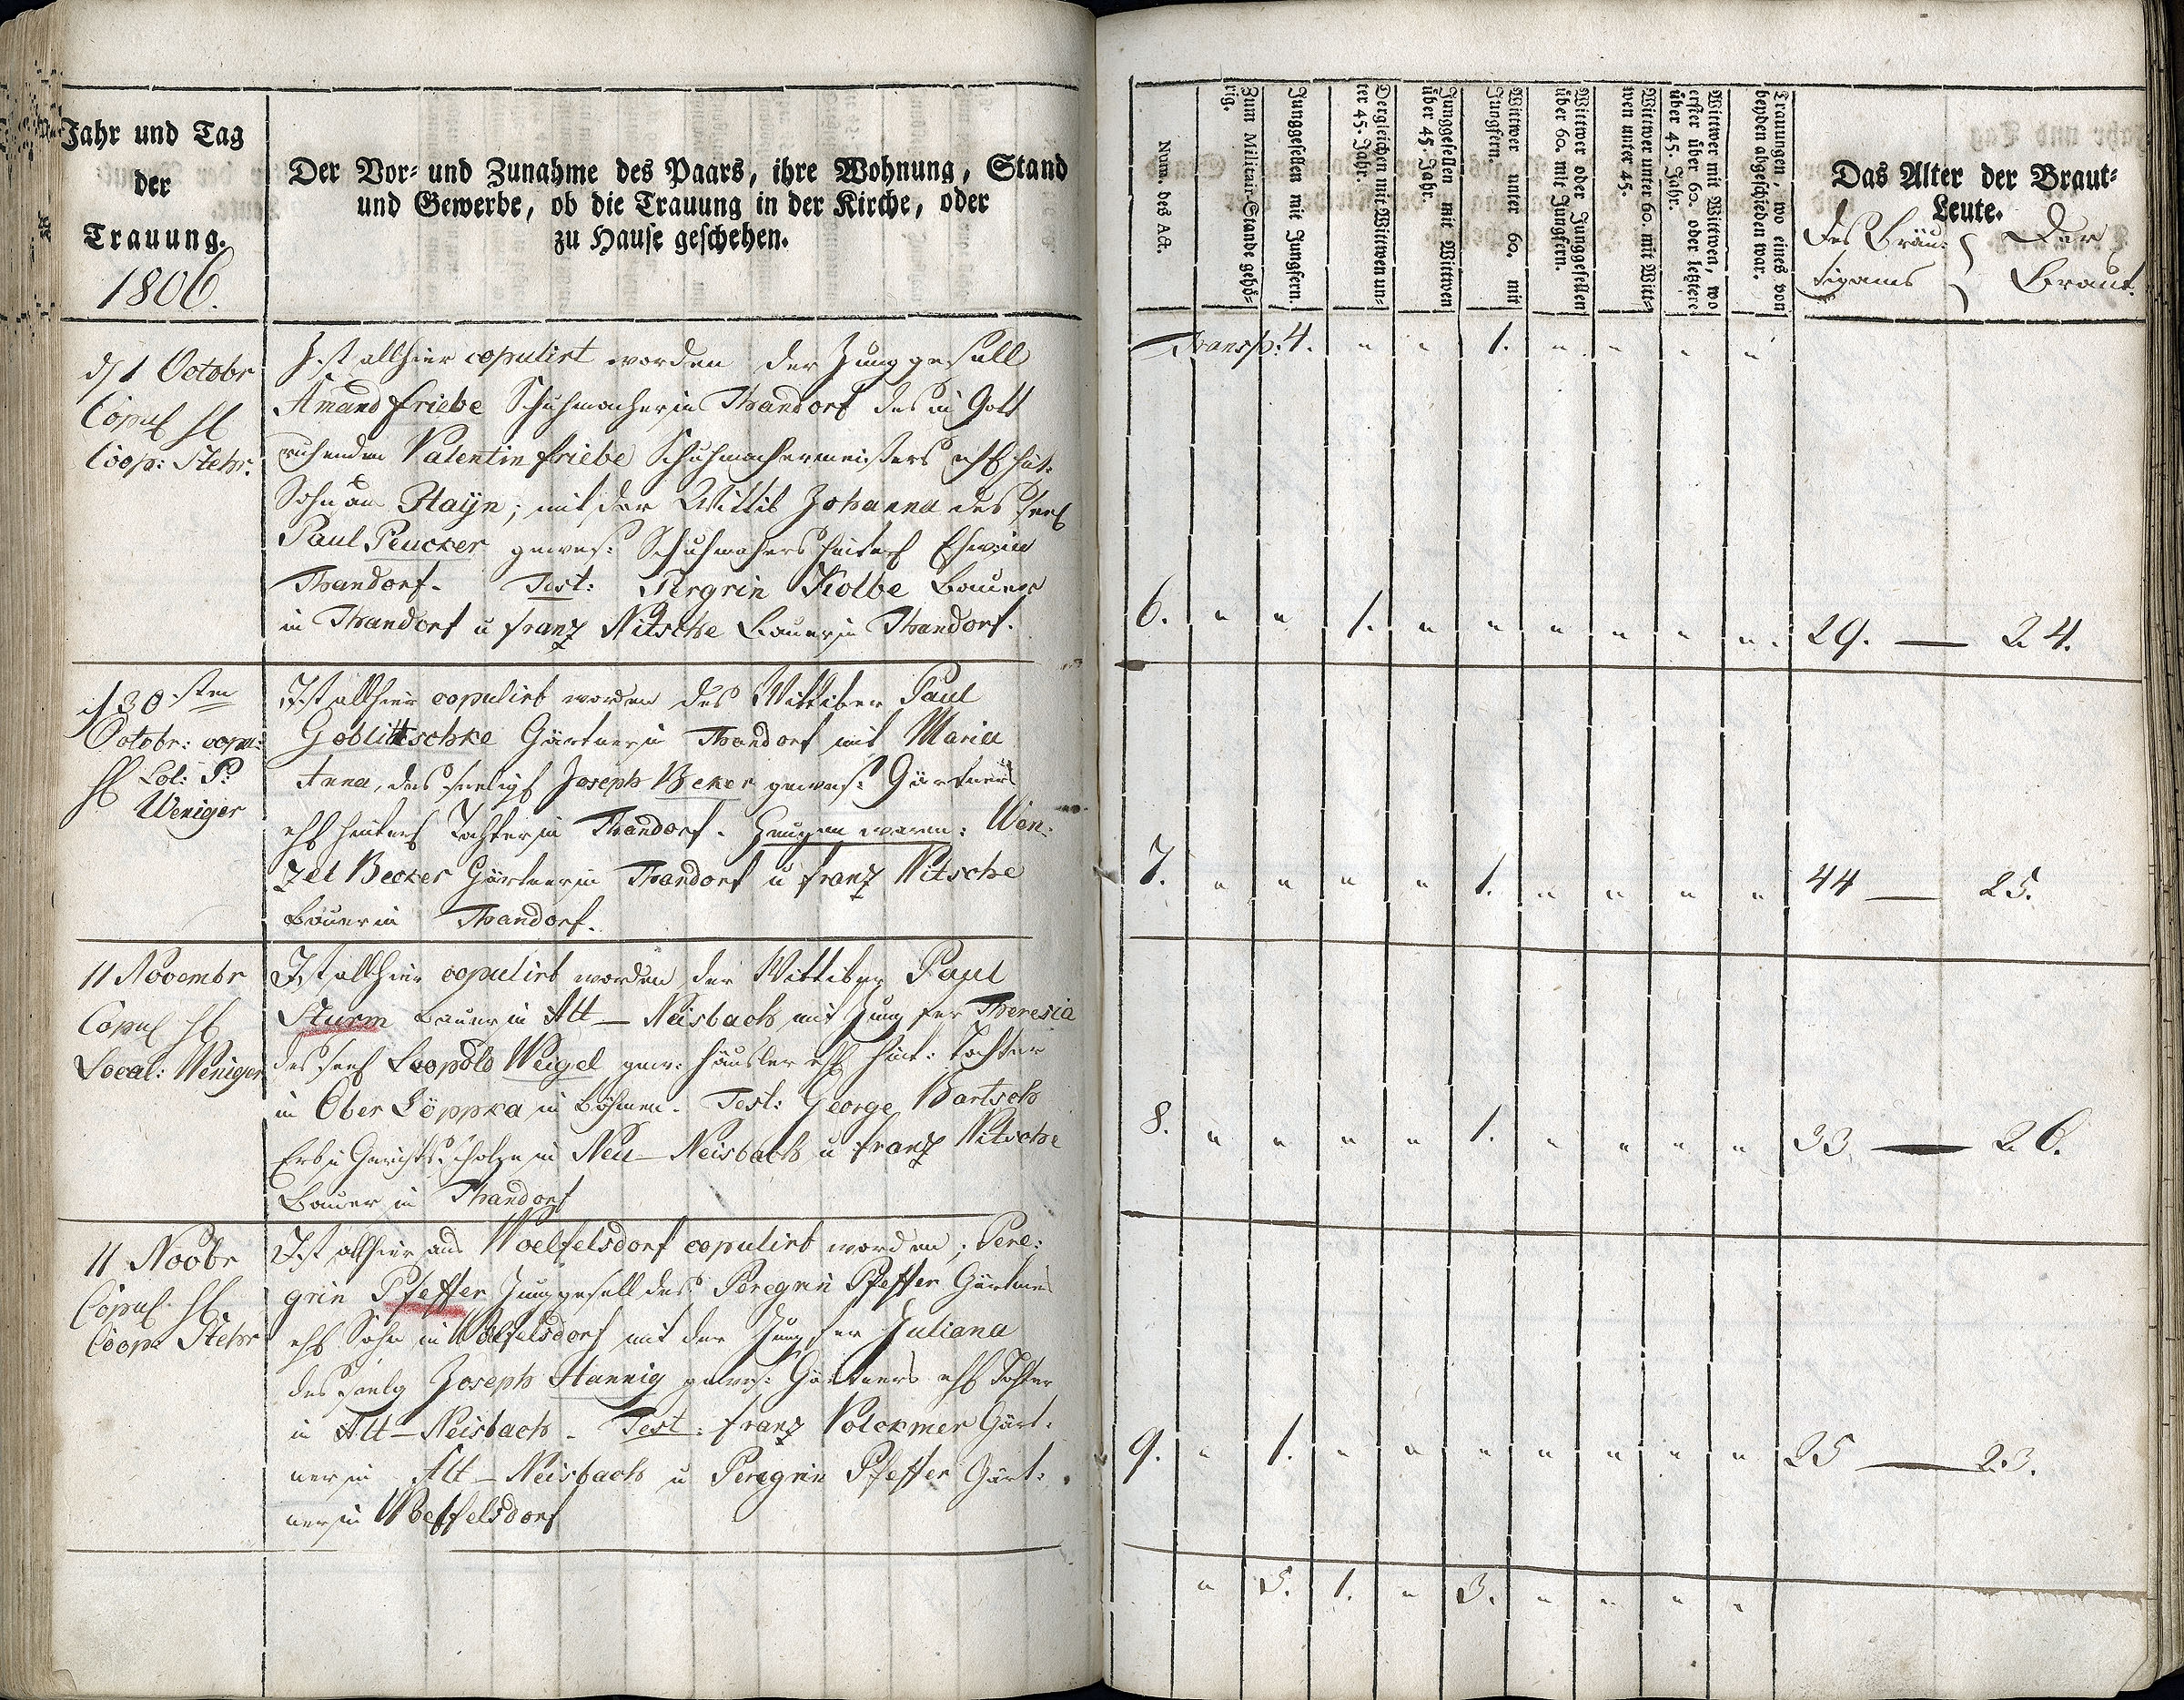 Jahr und Tag
der
Trauung.
1806.
Der Vor- und Zunahme des Paars, ihre Wohnung, Stand
und Gewerbe, ob die Trauung in der Kirche, oder
zu Hause geschehen.
d 1 Octobr
Copul
Coop: Stehr.
Ist allhier copulirt worden der Junggesell
Amand Friebe Schuhmacher in Thandorf des in Gott
ruhenden Valentin Friebe Schuhmachermeisters ehl hint:
Sohn am Hayn; mit der Wittib Johanna des seel
Paul Peucker gewes: Schuhmachers hinterl Ehewie
Thandorf. Test: Pergrin Kolbe Bauer
in Thandorf u Franz Nitsche Bauer in Thandorf.
d 30sten
Octobr: copu:
Lol: P:
Weniger
Ist allhier copulirt worden des Wittiber Paul
Goblitschke Gärtner in Thandorf mit Maria
Anna, des seeligl Joseph Beker gewes: Gärtners
ehl hinterl Tochter in Thandorf. Zeugen waren: Wen:
zel Becker Gärtner in Thandorf u Franz Nitsche
Bauer in Thandorf.
11 Novembr
Copul
Local: Weniger
Ist allhier copulirt worden der Wittiber Paul
Sturm Bauer in Alt-Neisbach mit Jungfer Theresia
des seel Leopold Weigel gew: häusler ehl hint: Tochter
in Ober Löppka in Böhmen. Test: George Bartsch
Erb u Gerichts Scholze in Neu-Neisbach u Franz Nitsche
Bauer in Thandorf
11 Novbr
Copul.
Coop: Stehr
Ist allhier aus Woelfelsdorf copulirt worden; Pere:
grin Pfeffer Junggesell des Peregrin Pfeffer Gärtners
ehl Sohn in Wölfelsdorf mit der Jungfer Juliana
des seelg Joseph Hannig gewes: Gärtners ehl Tochter
in Alt-Neisbach. Test: Franz Volckmer Gärt:
ner in Alt-Neisbach u Peregrin Pfeffer Gärt:
ner in Woelfelsdorf
Num. des Act.
Zum Militair-Stande gehö-
rig.
Junggesellen mit Jungfern.
Dergleichen mit Wittwen un-
ter 45. Jahr.
Junggesellen mit Wittwen
über 45. Jahr.
Wittwer unter 60. mit
Jungfern.
Wittwer oder Junggesellen
über 60. mit Jungfern.
Wittwer unter 60. mit Witt-
wen unter 45.
Wittwer mit Wittwen, wo
erster über 60. oder letztere
über 45. Jahr.
Trauungen, wo eines von
beyden abgeschieden war.
Das Alter der Braut-
Leute.
des Bräu: Der
tigams Braut.
Transp: 4. " " 1. " " " "
6. " " 1. " " " " " " 29. — 24.
7. " " " " 1. " " " " 44 — 25.
8. " " " " 1. " " " " 33 — 26.
9. " 1. " " " " " " " 25 — 23.
" 5. 1. " 3. " " " "